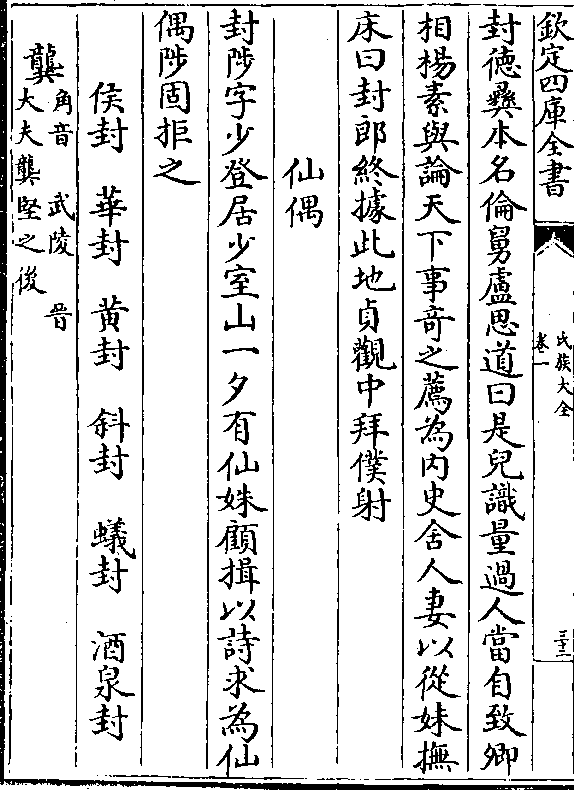 欽定四庫全書
氏族大全
卷一
三十二
封德彝本名倫舅盧思道曰是兒識量過人當自致卿
相楊素與論天下事竒之薦為内史舍人妻以從妹撫
床曰封郎終據此地貞觀中拜僕射
仙偶
封陟字少登居少室山一夕有仙姝顧揖以詩求為仙
偶陟固拒之
侯封 華封 黄封 斜封 蟻封 酒泉封
龔
角音 武陵 晉
大夫龔堅之後